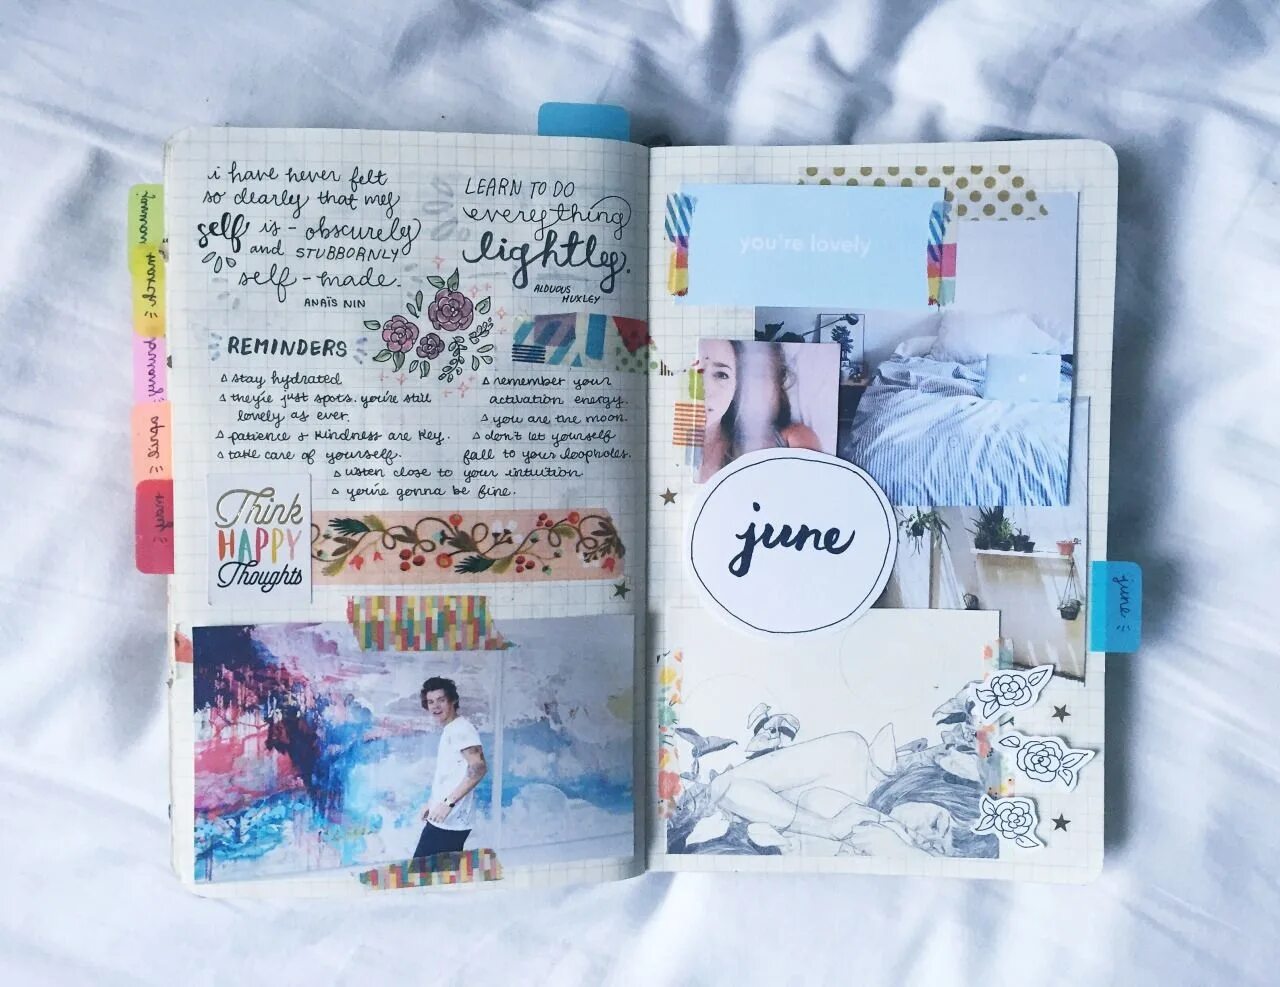 i have never felt
so clearly that my
self is - obscurely
and STUBBORNLY
self - made.
ANAÏS NIN
LEARN TO DO
everything
lightly.
ALDUOUS
HUXLEY
REMINDERS
Δ stay hydrated
Δ they're just spots. you're still
lovely as ever.
Δ patience & kindness are key.
Δ take care of yourself.
Δ remember your
activation energy.
Δ you are the moon.
Δ don't let yourself
fall to your loopholes.
Δ listen close to your intuition
Δ you're gonna be fine.
Think
HAPPY
Thoughts
january
march
april
may
you're lovely
june
june